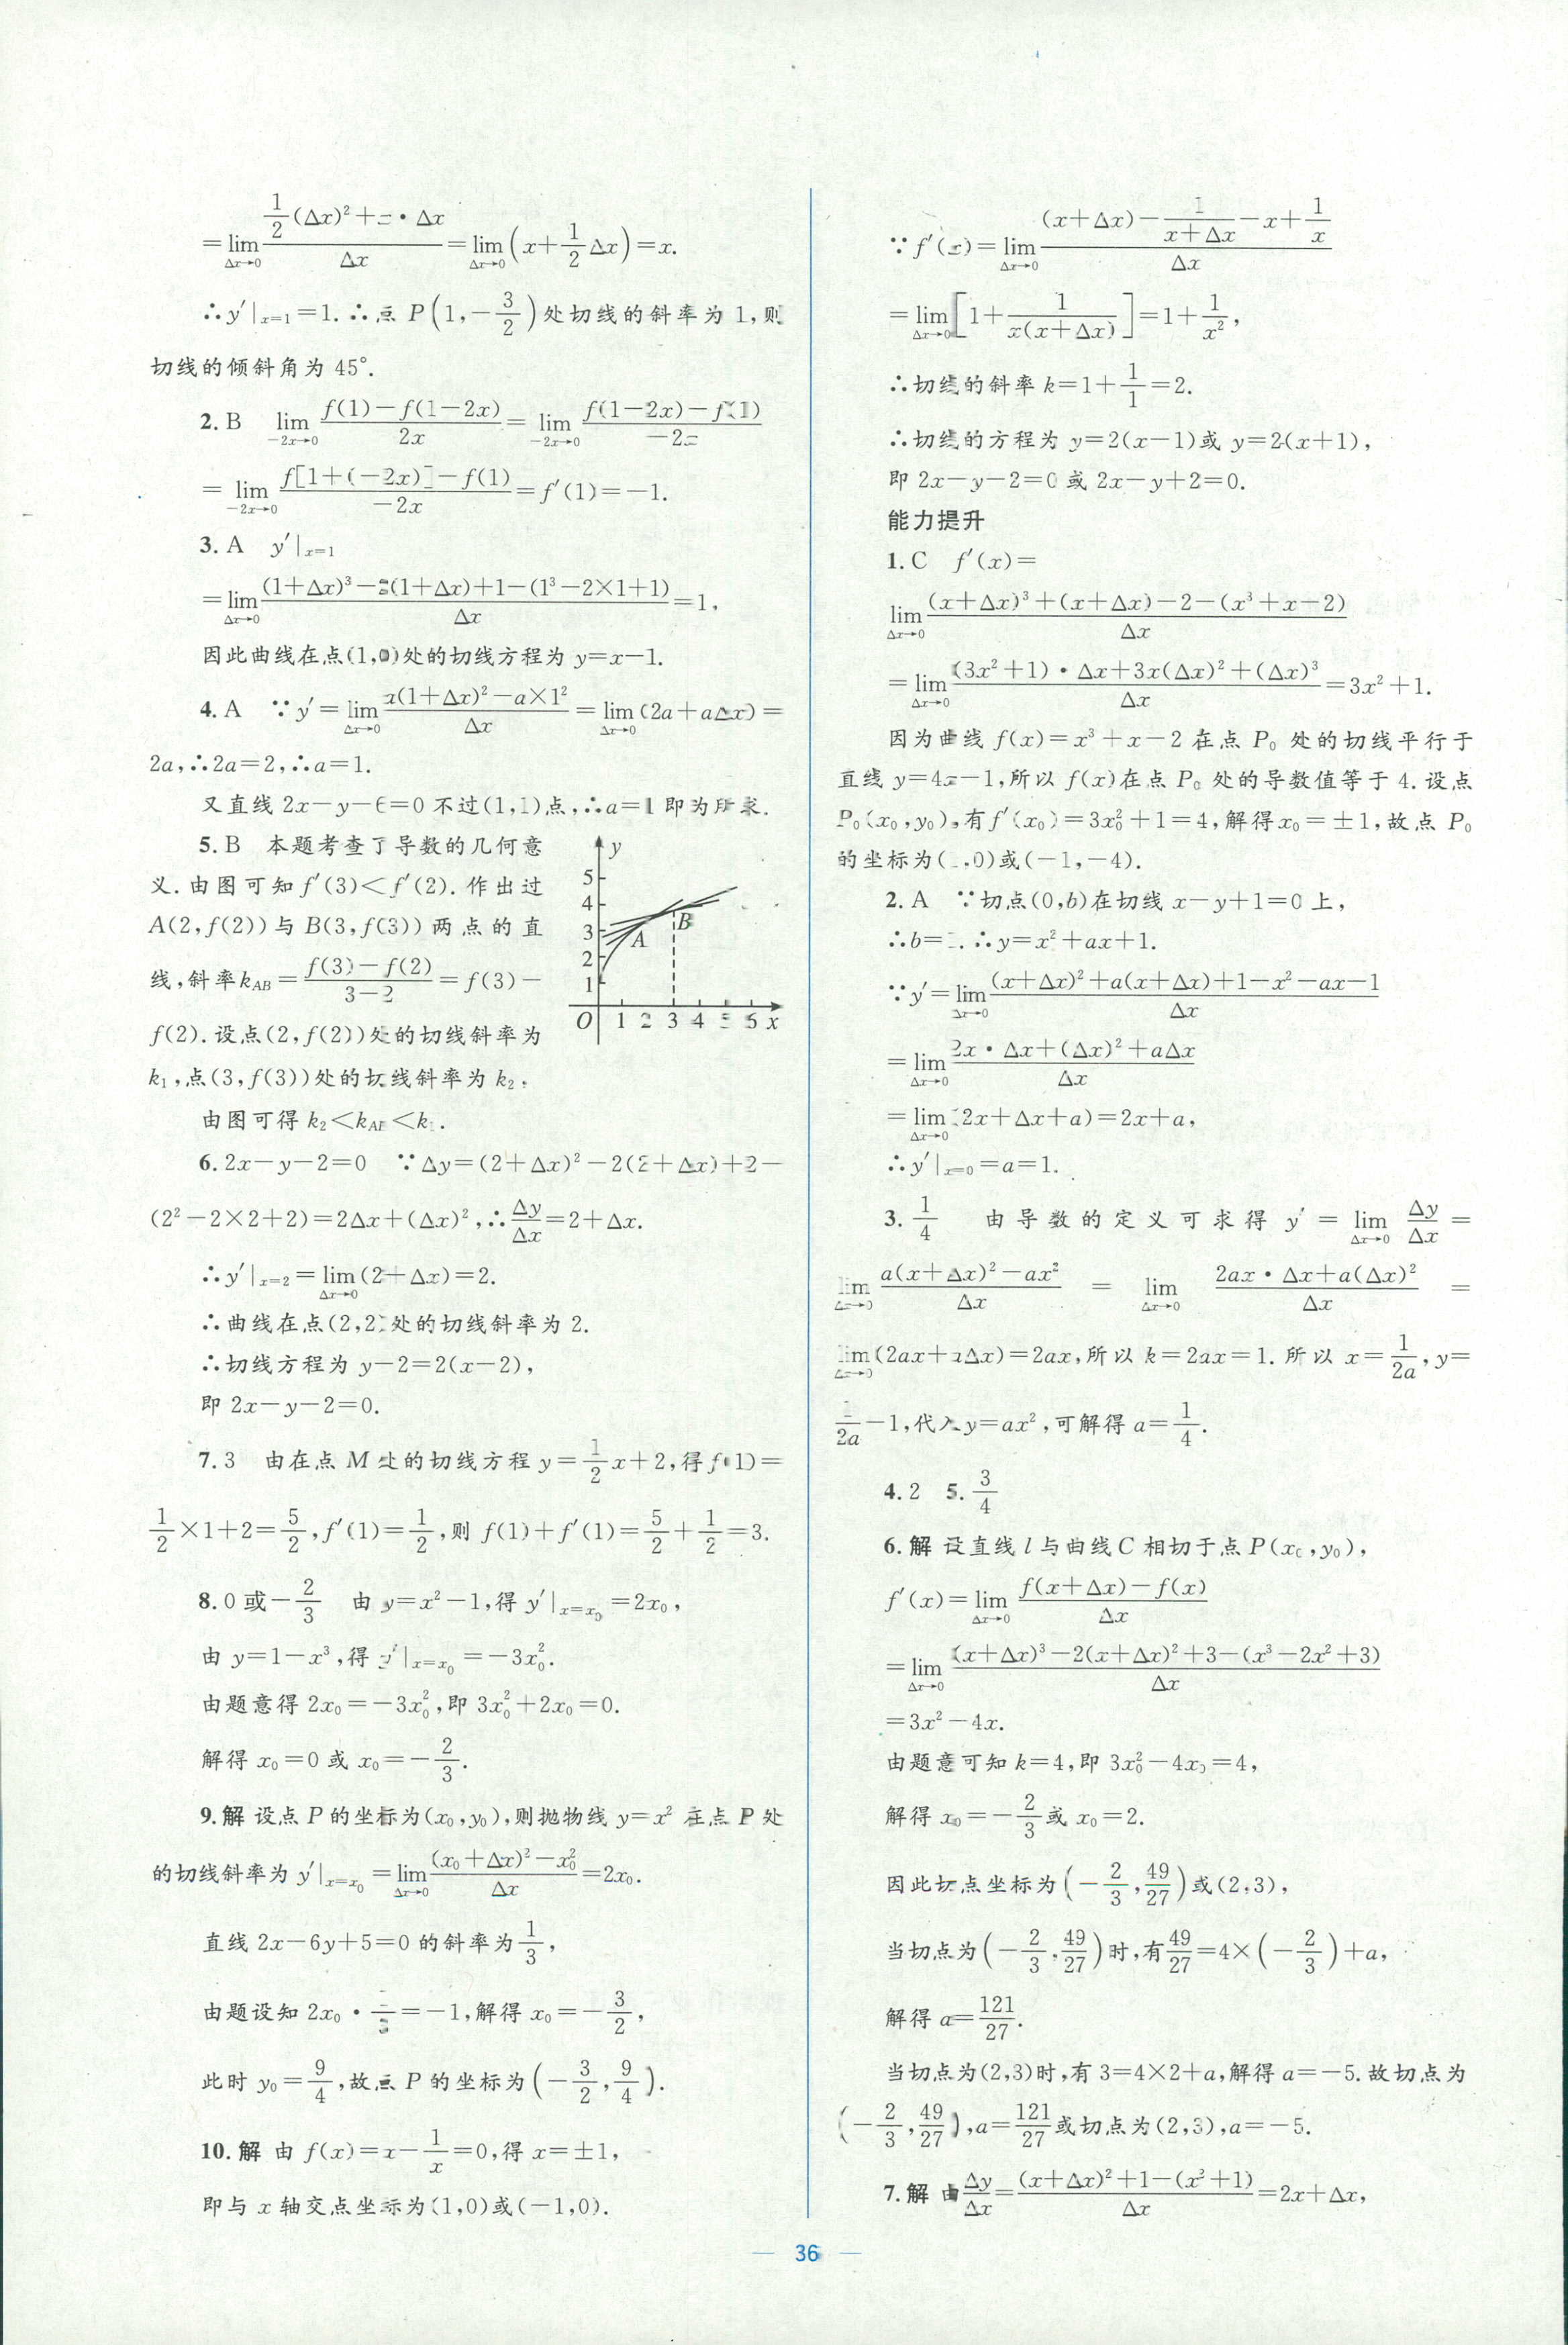 =lim(Δx→0) [1/2(Δx)²+x·Δx]/Δx=lim(Δx→0)(x+1/2Δx)=x.
∴y′|x=1=1.∴点 P(1,-3/2)处切线的斜率为 1,则
切线的倾斜角为 45°.
2. B lim(-2x→0) [f(1)-f(1-2x)]/2x=lim(-2x→0) [f(1-2x)-f(1)]/-2x
=lim(-2x→0) {f[1+(-2x)]-f(1)}/-2x=f′(1)=-1.
3. A y′|x=1
=lim(Δx→0) [(1+Δx)³-2(1+Δx)+1-(1³-2×1+1)]/Δx=1,
因此曲线在点(1,0)处的切线方程为 y=x-1.
4. A ∵y′=lim(Δx→0) [a(1+Δx)²-a×1²]/Δx=lim(Δx→0)(2a+aΔx)=
2a,∴2a=2,∴a=1.
又直线 2x-y-6=0 不过(1,1)点,∴a=1 即为所求.
5. B 本题考查了导数的几何意
义.由图可知 f′(3)<f′(2).作出过
A(2,f(2))与 B(3,f(3))两点的直
线,斜率 kAB=[f(3)-f(2)]/(3-2)=f(3)-
f(2).设点(2,f(2))处的切线斜率为
k₁,点(3,f(3))处的切线斜率为 k₂,
y
5
4
3
2
1
A
B
O 1 2 3 4 5 6 x
由图可得 k₂<kAB<k₁.
6. 2x-y-2=0 ∵Δy=(2+Δx)²-2(2+Δx)+2-
(2²-2×2+2)=2Δx+(Δx)²,∴Δy/Δx=2+Δx.
∴y′|x=2=lim(Δx→0)(2+Δx)=2.
∴曲线在点(2,2)处的切线斜率为 2.
∴切线方程为 y-2=2(x-2),
即 2x-y-2=0.
7. 3 由在点 M 处的切线方程 y=1/2x+2,得 f(1)=
1/2×1+2=5/2,f′(1)=1/2,则 f(1)+f′(1)=5/2+1/2=3.
8. 0 或-2/3 由 y=x²-1,得 y′|x=x₀=2x₀,
由 y=1-x³,得 y′|x=x₀=-3x₀².
由题意得 2x₀=-3x₀²,即 3x₀²+2x₀=0.
解得 x₀=0 或 x₀=-2/3.
9. 解 设点 P 的坐标为(x₀,y₀),则抛物线 y=x² 在点 P 处
的切线斜率为 y′|x=x₀=lim(Δx→0) [(x₀+Δx)²-x₀²]/Δx=2x₀.
直线 2x-6y+5=0 的斜率为1/3,
由题设知 2x₀·1/3=-1,解得 x₀=-3/2,
此时 y₀=9/4,故点 P 的坐标为(-3/2,9/4).
10. 解 由 f(x)=x-1/x=0,得 x=±1,
即与 x 轴交点坐标为(1,0)或(-1,0).
∵f′(x)=lim(Δx→0) [(x+Δx)-1/(x+Δx)-x+1/x]/Δx
=lim(Δx→0)[1+1/x(x+Δx)]=1+1/x²,
∴切线的斜率 k=1+1/1=2.
∴切线的方程为 y=2(x-1)或 y=2(x+1),
即 2x-y-2=0 或 2x-y+2=0.
能力提升
1. C f′(x)=
lim(Δx→0) [(x+Δx)³+(x+Δx)-2-(x³+x-2)]/Δx
=lim(Δx→0) [(3x²+1)·Δx+3x(Δx)²+(Δx)³]/Δx=3x²+1.
因为曲线 f(x)=x³+x-2 在点 P₀ 处的切线平行于
直线 y=4x-1,所以 f(x)在点 P₀ 处的导数值等于 4.设点
P₀(x₀,y₀),有 f′(x₀)=3x₀²+1=4,解得 x₀=±1,故点 P₀
的坐标为(1,0)或(-1,-4).
2. A ∵切点(0,b)在切线 x-y+1=0 上,
∴b=1.∴y=x²+ax+1.
∵y′=lim(Δx→0) [(x+Δx)²+a(x+Δx)+1-x²-ax-1]/Δx
=lim(Δx→0) [2x·Δx+(Δx)²+aΔx]/Δx
=lim(Δx→0)(2x+Δx+a)=2x+a,
∴y′|x=0=a=1.
3. 1/4 由导数的定义可求得 y′=lim(Δx→0) Δy/Δx=
lim(Δx→0) [a(x+Δx)²-ax²]/Δx=lim(Δx→0) [2ax·Δx+a(Δx)²]/Δx=
lim(Δx→0)(2ax+aΔx)=2ax,所以 k=2ax=1.所以 x=1/2a,y=
1/2a-1,代入 y=ax²,可解得 a=1/4.
4. 2 5. 3/4
6. 解 设直线 l 与曲线 C 相切于点 P(x₀,y₀),
f′(x)=lim(Δx→0) [f(x+Δx)-f(x)]/Δx
=lim(Δx→0) [(x+Δx)³-2(x+Δx)²+3-(x³-2x²+3)]/Δx
=3x²-4x.
由题意可知 k=4,即 3x₀²-4x₀=4,
解得 x₀=-2/3或 x₀=2.
因此切点坐标为(-2/3,49/27)或(2,3),
当切点为(-2/3,49/27)时,有49/27=4×(-2/3)+a,
解得 a=121/27.
当切点为(2,3)时,有 3=4×2+a,解得 a=-5.故切点为
(-2/3,49/27),a=121/27或切点为(2,3),a=-5.
7. 解 由Δy/Δx=[(x+Δx)²+1-(x²+1)]/Δx=2x+Δx,
— 36 —